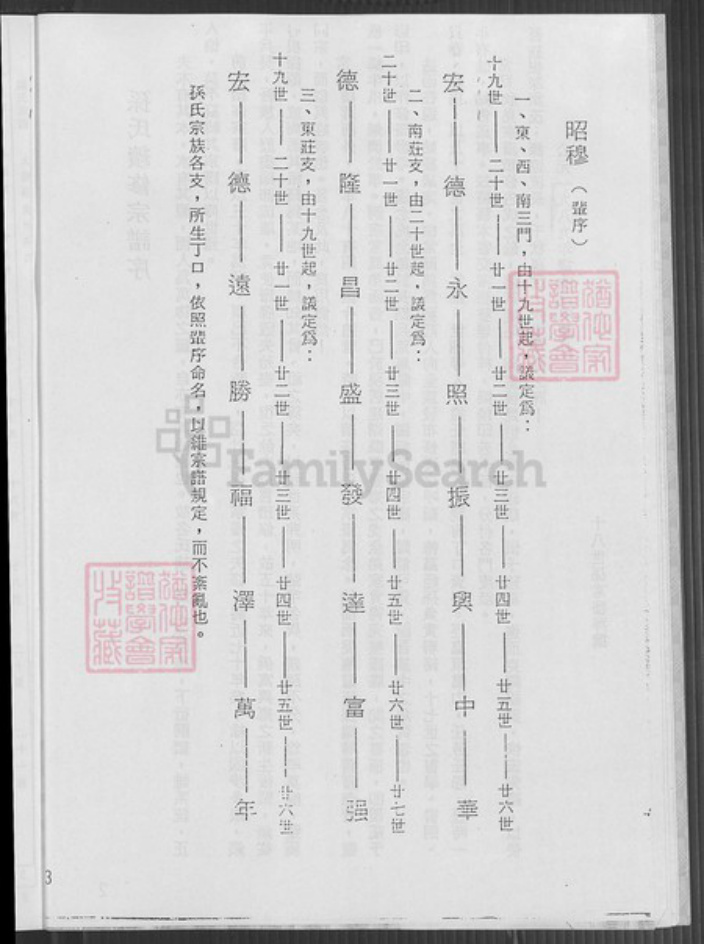 昭穆（輩序）
一、東、西、南三門，由十九世起，議定爲：
十九世——二十世——廿一世——廿二世——廿三世——廿四世——廿五世——廿六世
宏——德——永——照——振——興——中——華
二、南莊支，由二十世起，議定爲：
二十世——廿一世——廿二世——廿三世——廿四世——廿五世——廿六世——廿七世
德——隆——昌——盛——發——達——富——强
三、東莊支，由十九世起，議定爲：
十九世——二十世——廿一世——廿二世——廿三世——廿四世——廿五世——廿六世
宏——德——遠——勝——福——澤——萬——年
孫氏宗族各支，所生丁口，依照輩序命名，以維宗譜規定，而不紊亂也。
3
FamilySearch
猶他家譜學會特藏
猶他家譜學會特藏